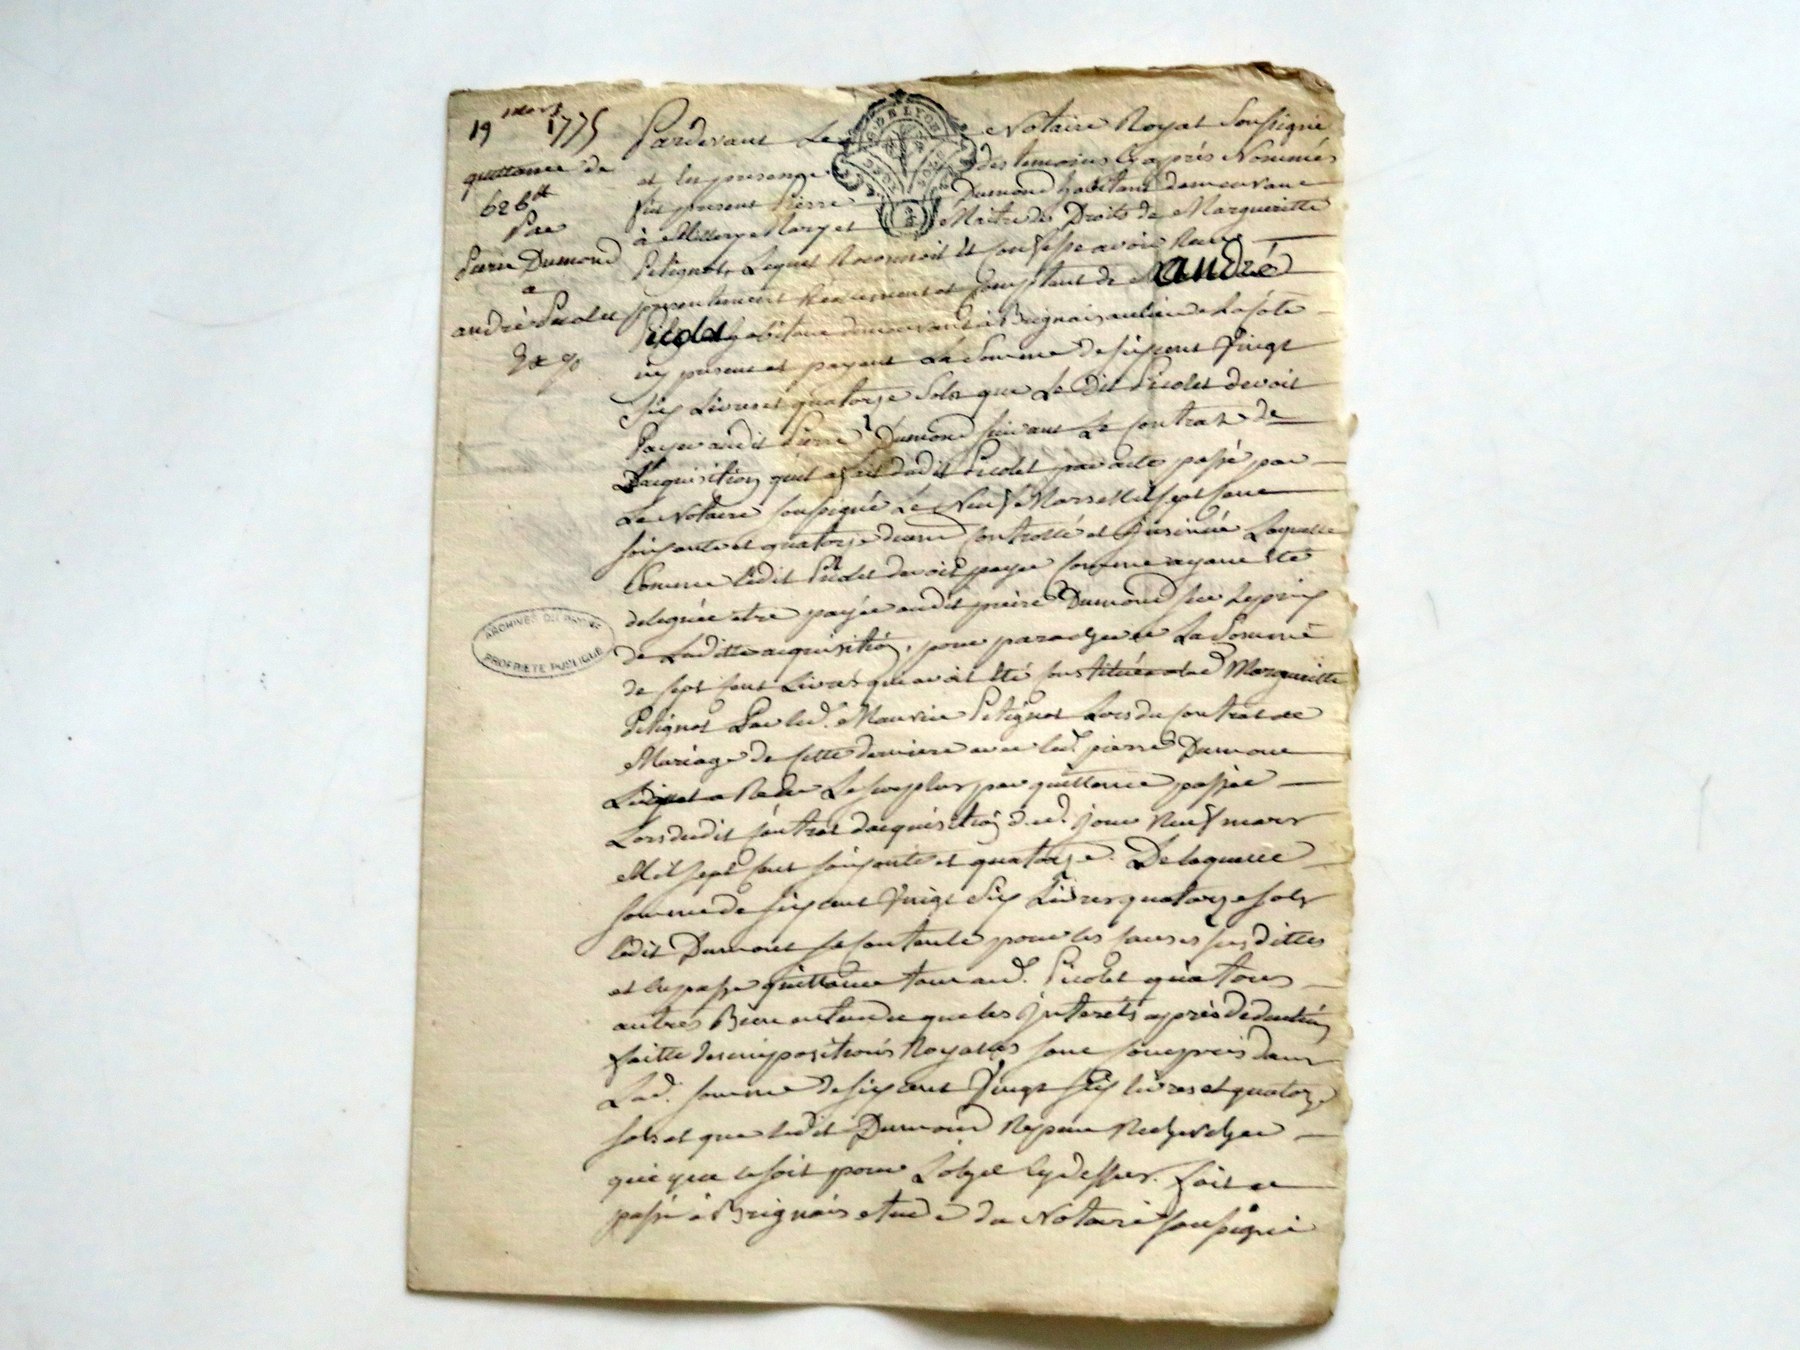 19 mars 1775
quittance de
626 tt
Par
Pierre Dumond
a
andré Picolet
Pardevant Le Notaire Royal Soussigné
et En presence des temoins Cy après Nommés
fut present Pierre Dumond habitant demeurant
à Millery Mary et Maitre des Droits de Margueritte
Petignot, Lequel Reconnoit et Confesse avoir Reçu
presentement Reellement et Comptant de andré
Picolet habitant demeurant à Brignais au lieu de La Côte
icy present et payant La Somme de six cent Vingt
six Livres et quatorze Sols que Le dit Picolet devoit
Payer audit Pierre Dumond suivant Le Contrat de
L'acquisition qu'il a fait dudit Picolet par acte passé par
Le Notaire soussigné Le Neuf Mars Mil sept cent
soixante et quatorze duem. Controllé et Insinué Laquelle
Somme ledit Picolet devoit payer Comme ayant été
deleguée etre payée audit pierre Dumond sur Le prix
de Laditte acquisition, pour parachever La Somme
de sept cent Livres qui avoit été constituée a lad. Margueritte
Petignot Par led. Maurice Petignot Lors du Contrat de
Mariage de Cette derniere avec led. pierre Dumond
Lequel a Reçu Le surplus par quittance passée
Lors dudit Contrat d'acquisition dud. jour Neuf mars
Mil sept cent soixante et quatorze. De laquelle
somme de six cent Vingt Six Livres quatorze sols
ledit Dumond se Contente pour les causes susdittes
et En passe quittance tant aud. Picolet qu'a tous
autres Bien entendu que les Interets après deduction
faitte des impositions Royales sont Compris dans
Lad. somme de six cent Vingt six livres et quatorze
sols et que ledit Dumond Ne pourra Rechercher
qui que ce soit pour L'objet Cy dessus. fait et
passé à Brignais etude du Notaire soussigné
ARCHIVES DU RHÔNE
PROPRIÉTÉ PUBLIQUE